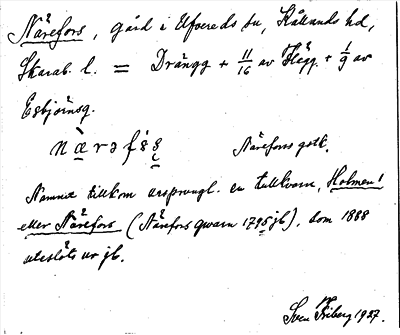 Nårefors, gård i Ufvereds sn, Kållands hd,
Skarab. l. = Drängg + 11/16 av Hägg. + 1/9 av
Esbjörnsg.
Nårefors gstk.
Namnet tillkom ursprungl. en tullkvarn, Holmen
eller Nårefors (Nårefors qvarn 1795 jb), som 1888
uteslöts ur jb.
Sven Friberg 1927.